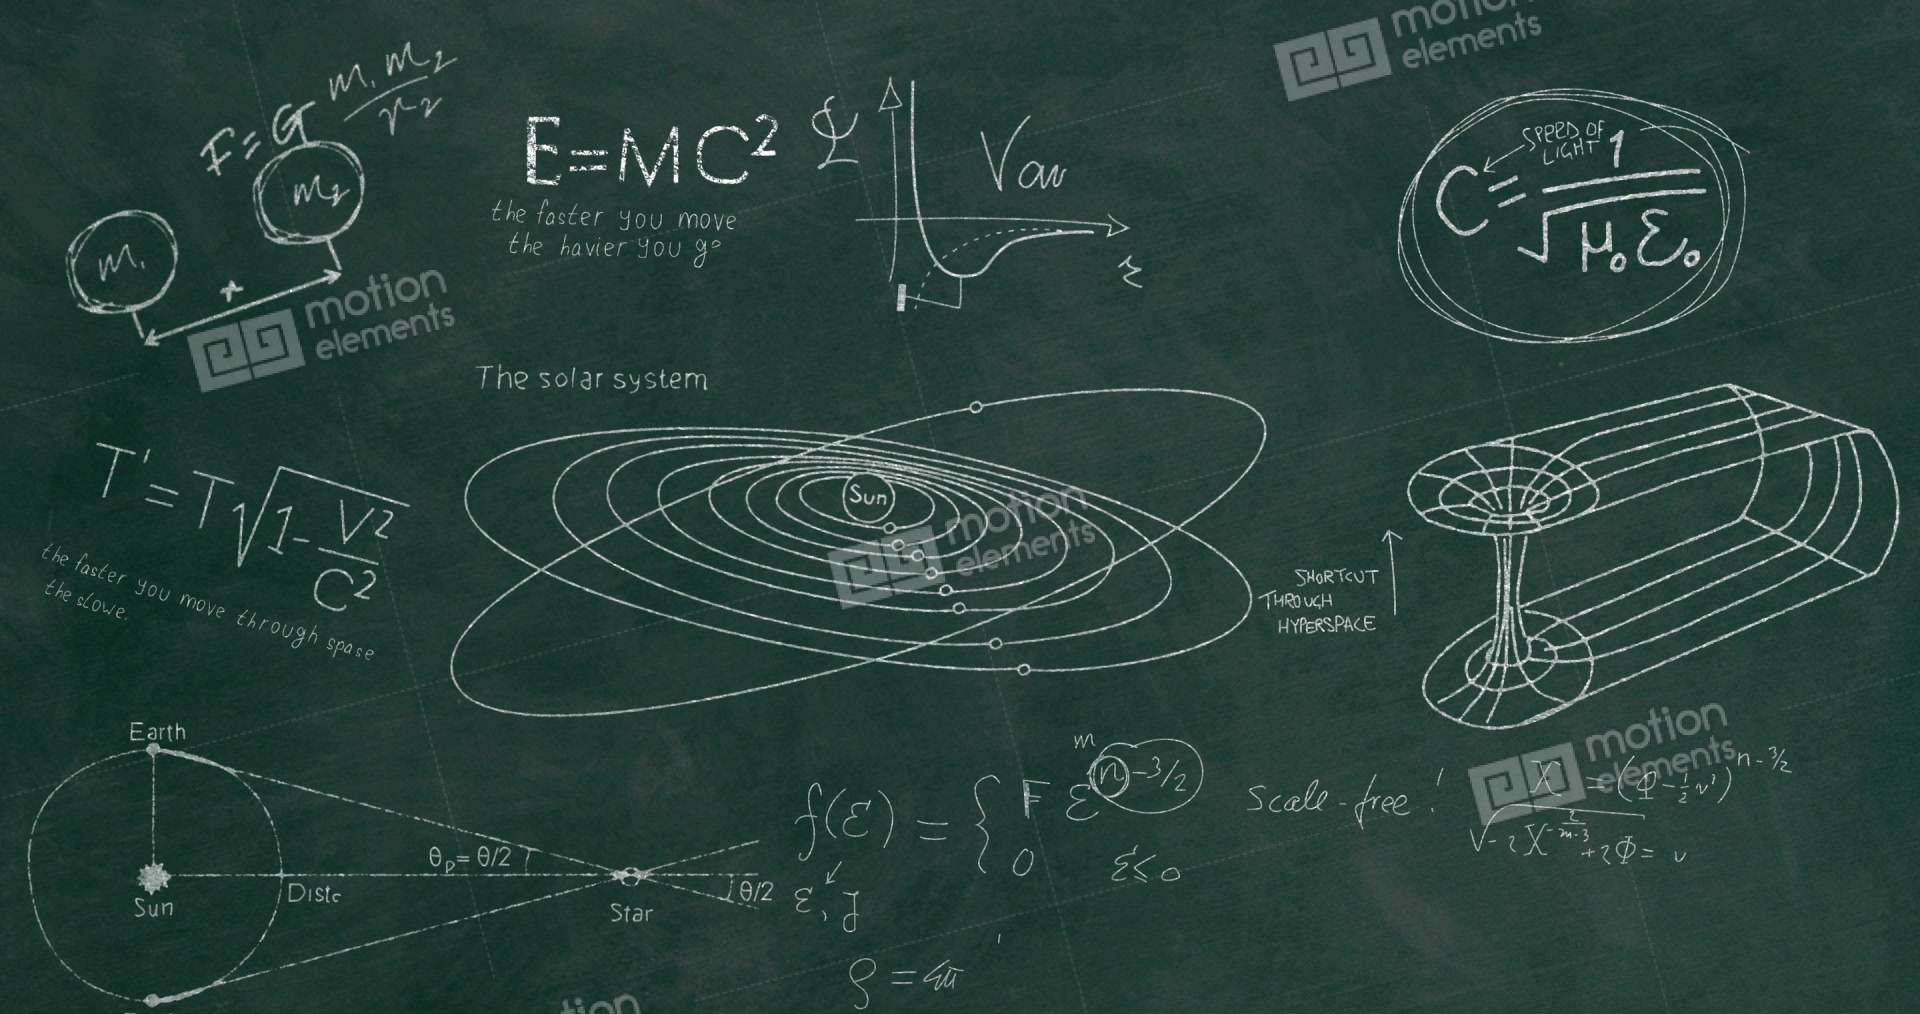 motion
elements
F=G m₁ m₂
r₂
m₂
m₁
E=MC²
the faster you move
the havier you g
V
r
C= 1
√μ₀ε₀
SPEED OF
LIGHT
motion
elements
The solar system
Sun
motion
elements
T'=T√1-V²
C²
the faster you move through spase
the slowe.
SHORTCUT
THROUGH
HYPERSPACE
Earth
Sun
Distc
θp=θ/2
Star
θ/2
f(ε) = { F ε n-3/2
m
0 ε≤0
ε, J
Scale-free!
motion
elements
X =(Φ-½v²)n-3/2
ρ =4π
motion